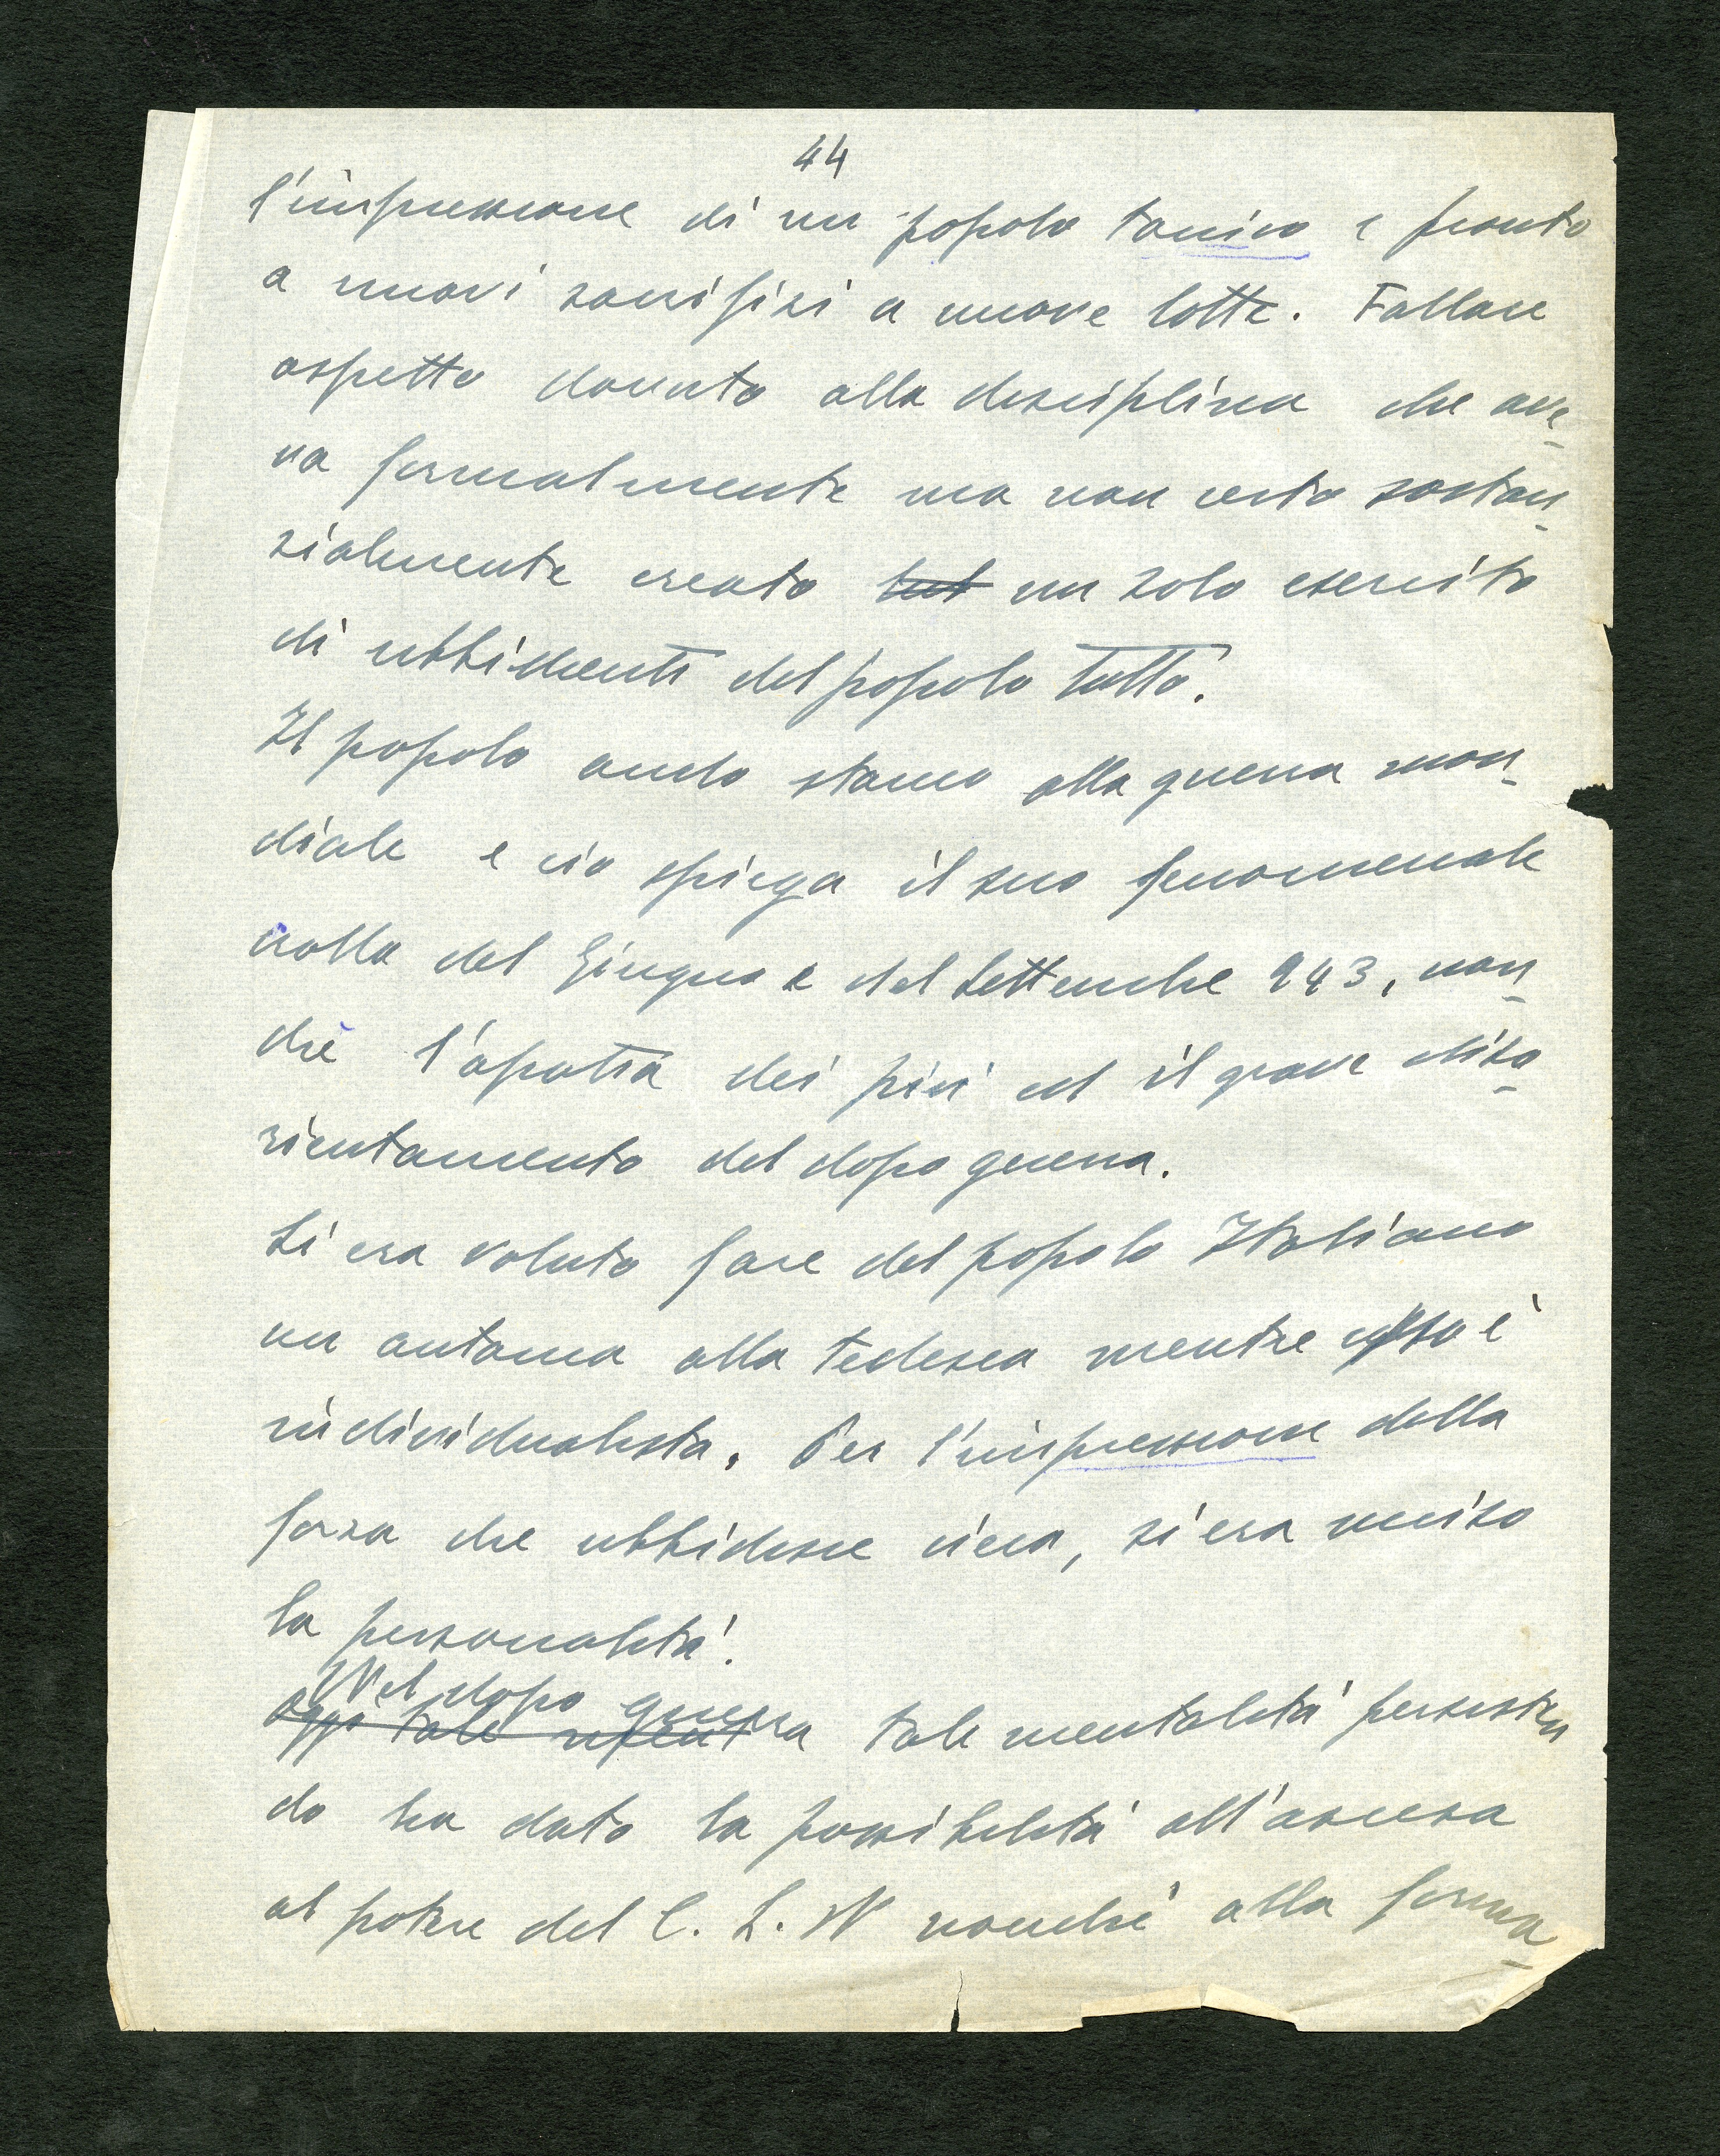 44
l'impressione di un popolo tonico e pronto
a nuovi sacrifizi a nuove lotte. Fallace
aspetto dovuto alla disciplina che ave-
va formalmente ma non certo sostan-
zialmente creato tut un solo esercito
di ubbidienti del popolo tutto.
Il popolo andò stanco alla guerra mon-
diale e ciò spiega il suo fenomenale
crollo del Giugno e del Settembre 943, non-
chè l'apatia dei più ed il grave diso-
rientamento del dopo guerra.
Si era voluto fare del popolo Italiano
un automa alla tedesca mentre esso è
individualista. Per l'impressione della
forza che ubbidisce cieca, si era ucciso
la personalità.
Nel dopo guerra
oggi tale tale mentalità persisten
do ha dato la possibilità all'ascesa
al potere del C. L. N nonchè alla forma-